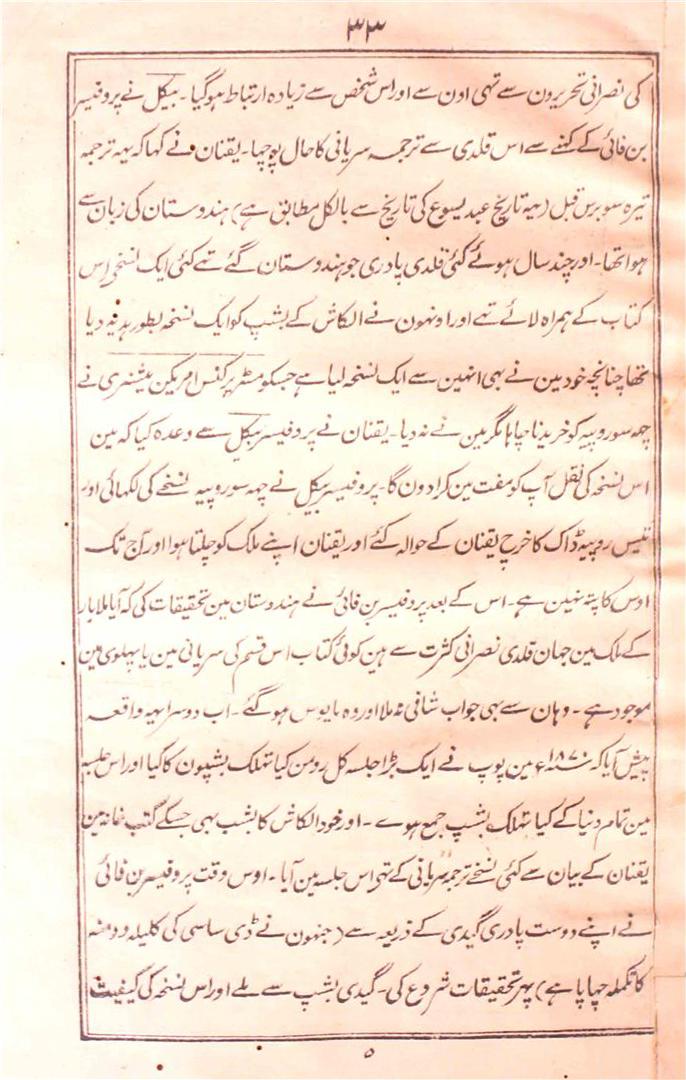 ۳۳
کی نصرانی تحریرون سے تہی اون سے اور اس شخص سے زیادہ ارتباط ہو گیا۔ بیکل نے پروفیسر
بن فائی کے کہنے سے اس قلدی سے ترجمہ سریانی کا حال پوچہا۔ یقنان نے کہا کہ یہہ ترجمہ
تیرہ سو برس قبل (یہ تاریخ عبد یسوع کی تاریخ سے بالکل مطابق ہے) ہندوستان کی زبان سے
ہوا تہا۔ اور چند سال ہوئے کئی قلدی پادری جو ہندوستان گئے تہے کئی ایک نسخے اس
کتاب کے ہمراہ لائے تہے اور اونہون نے الکاش کے بشپ کو ایک نسخہ بطور ہدیہ دیا
تہا چنانچہ خود مین نے بہی انہین سے ایک نسخہ لیا ہے جسکو مسٹر پرکنس امریکن مشنری نے
چہہ سو روپیہ کو خریدنا چاہا مگر مین نے نہ دیا۔ یقنان نے پروفیسر بیکل سے وعدہ کیا کہ مین
اس نسخہ کی نقل آپ کو مفت مین کرا دون گا۔ پروفیسر بیکل نے چہہ سو روپیہ نسخے کی لکہائی اور
تیس روپیہ ڈاک کا خرچ یقنان کے حوالہ کئے اور یقنان اپنے ملک کو چلتا ہوا اور آج تک
اوس کا پتہ نہین ہے۔ اس کے بعد پروفیسر بن فائی نے ہندوستان مین تحقیقات کی کہ آیا ملابار
کے ملک مین جہان قلدی نصرانی کثرت سے ہین کوئی کتاب اس قسم کی سریانی مین یا پہلوی مین
موجود ہے۔ وہان سے بہی جواب شافی نہ ملا اور وہ مایوس ہو گئے۔ اب دوسرا یہہ واقعہ
پیش آیا کہ سنہ ۱۸۷۰ء مین پوپ نے ایک بڑا جلسہ کل رومن کیاتہلک بشپون کا کیا اور اس جلسہ
مین تمام دنیا کے کیاتہلک بشپ جمع ہوے۔ اور خود الکاش کا بشپ بہی جسکے کتب خانہ مین
یقنان کے بیان سے کئی نسخے ترجمہ سریانی کے تہے اس جلسہ مین آیا۔ اوس وقت پروفیسر بن فائی
نے اپنے دوست پادری گیدی کے ذریعہ سے (جنہون نے ڈی ساسی کی کلیلہ دومنہ
کا تکملہ چہاپا ہے) پہر تحقیقات شروع کی۔ گیدی بشپ سے ملے اور اس نسخہ کی کیفیت
۵